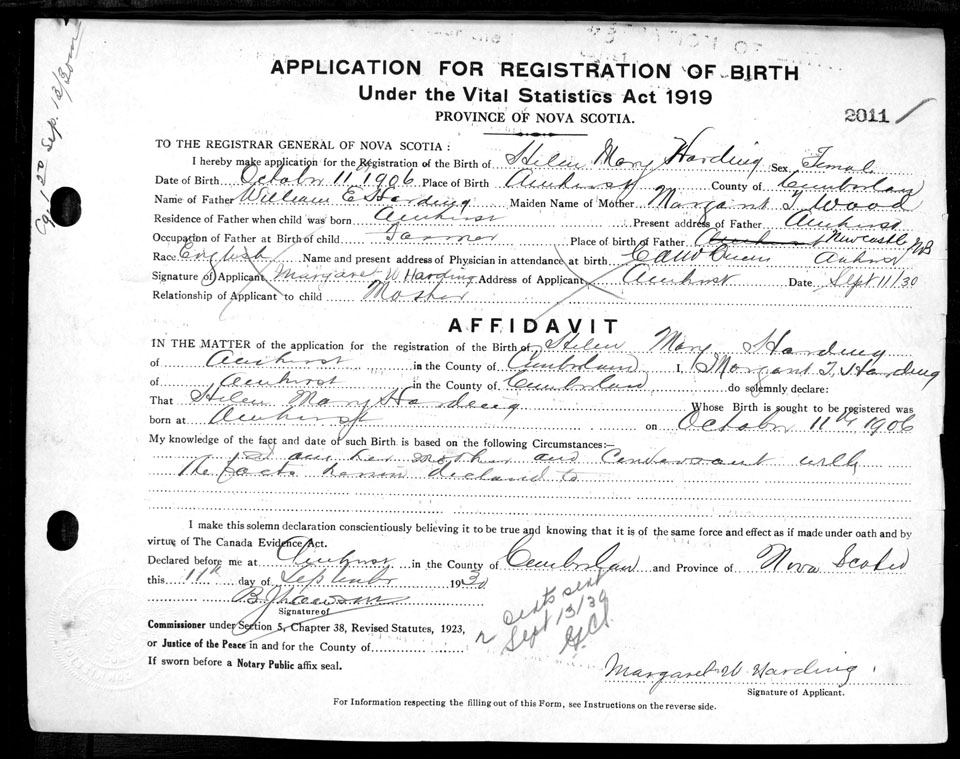 APPLICATION FOR REGISTRATION OF BIRTH
Under the Vital Statistics Act 1919
PROVINCE OF NOVA SCOTIA.
2011
TO THE REGISTRAR GENERAL OF NOVA SCOTIA:
I hereby make application for the Registration of the Birth of Helen Mary Harding Sex Femal
Date of Birth October 11th 1906 Place of Birth Amherst County of Cumberland
Name of Father William E Harding Maiden Name of Mother Margaret T Wood
Residence of Father when child was born Amherst Present address of Father Amherst
Occupation of Father at Birth of child Farmer Place of birth of Father Amherst Newcastle NB
Race English Name and present address of Physician in attendance at birth Amherst
Signature of Applicant Margaret W Harding Address of Applicant Amherst Date Sept 11/30
Relationship of Applicant to child Mother
AFFIDAVIT
IN THE MATTER of the application for the registration of the Birth of Helen Mary Harding
of Amherst in the County of Cumberland I, Margaret T. Harding
of Amherst in the County of Cumberland do solemnly declare:
That Helen Mary Harding Whose Birth is sought to be registered was
born at Amherst on October 11th 1906
My knowledge of the fact and date of such Birth is based on the following Circumstances:—
I am her mother and conversant with
the facts herein declared to
I make this solemn declaration conscientiously believing it to be true and knowing that it is of the same force and effect as if made under oath and by
virtue of The Canada Evidence Act.
Declared before me at Amherst in the County of Cumberland and Province of Nova Scotia
this 11th day of September 1930
Signature of
Commissioner under Section 5, Chapter 38, Revised Statutes, 1923,
or Justice of the Peace in and for the County of
If sworn before a Notary Public affix seal.
Sept 13/30
Margaret W. Harding.
Signature of Applicant.
For Information respecting the filling out of this Form, see Instructions on the reverse side.